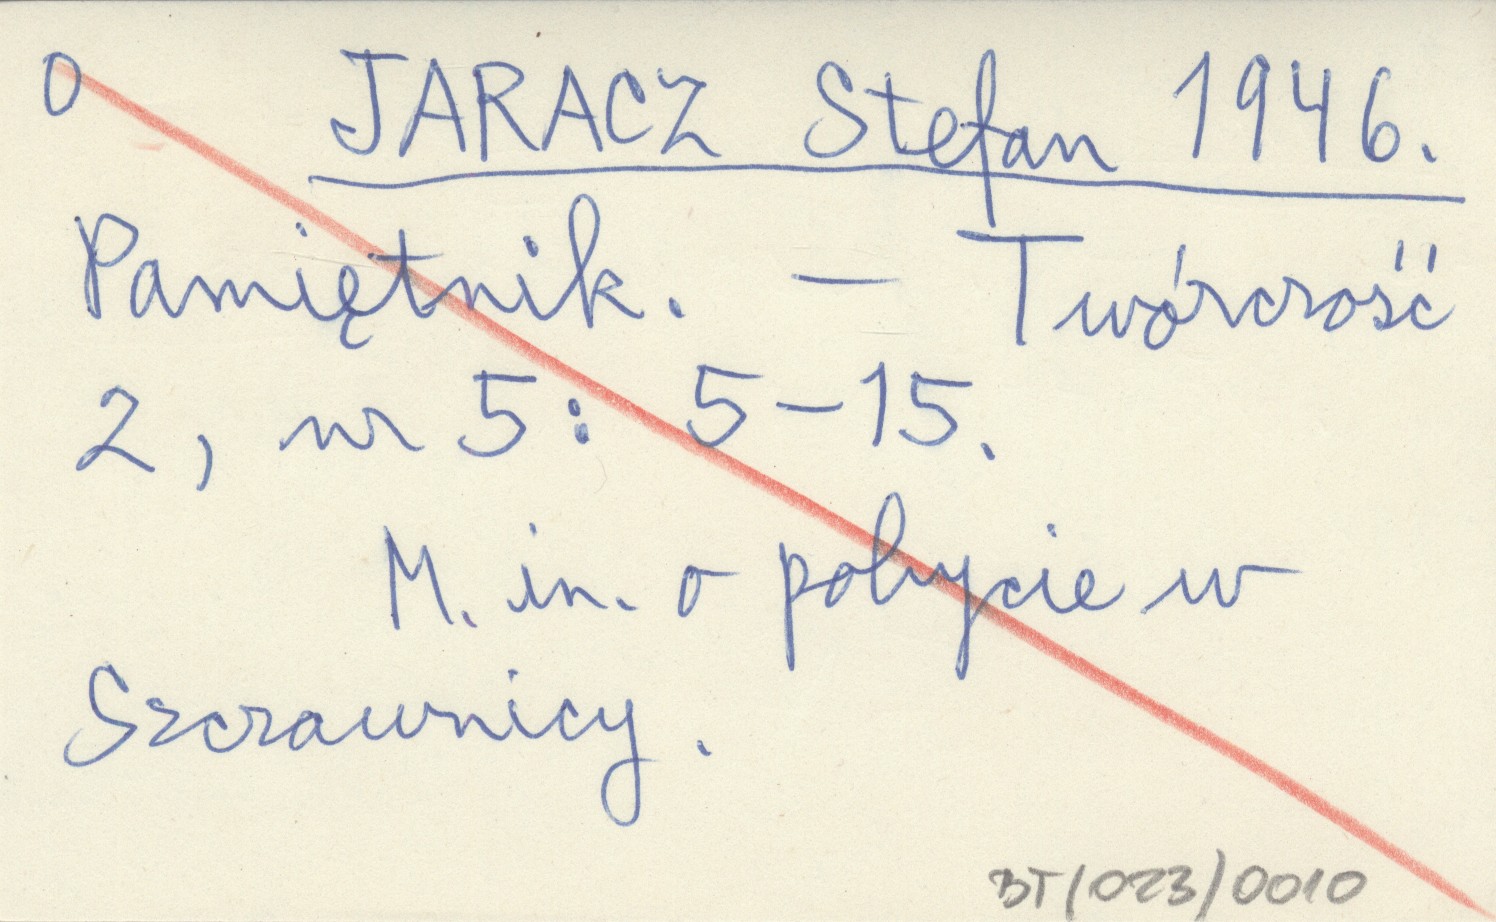 O JARACZ Stefan 1946.
Pamiętnik. – Twórczość
2, nr 5: 5–15.
M. in. o pobycie w
Szczawnicy.
BT/023/0010